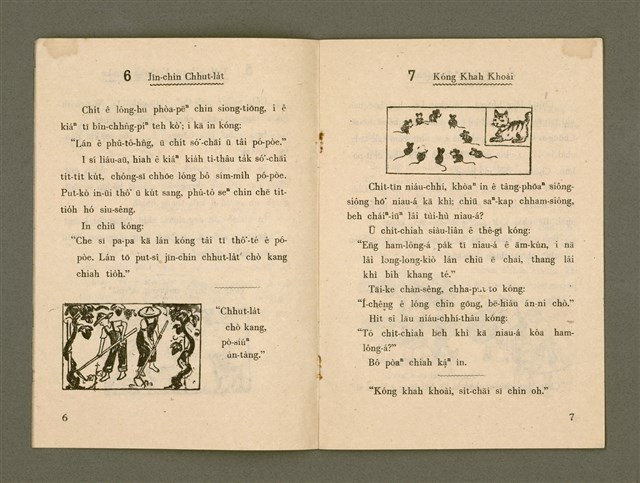 6 Jīn-chin Chhut-la̍t
Chi̍t ê lông-hu phòa-pēⁿ chin siong-tiōng, i ê
kiáⁿ tī bîn-chhn̂g-piⁿ teh kò͘; i kā in kóng:
“Lán ê phû-tô-hn̂g, ū chi̍t só͘-chāi ū tâi pó-pòe.”
I sì liáu-āu, hiah ê kiáⁿ kia̍h tî-thâu ta̍k só͘-chāi
ti̍t-ti̍t ku̍t, chóng-sī chhōe lóng bô sím-mi̍h pó-pòe.
Put-kò in-ūi thô͘ ū ku̍t sang, phû-tô seⁿ chin chē tit-
tio̍h hó siu-sêng.
In chiū kóng:
“Che sī pa-pa kā lán kóng tâi tī thô͘-té ê pó-
pòe. Lán tō put-sî jīn-chin chhut-la̍t chò kang
chiah tio̍h.”
“Chhut-la̍t
chò kang,
pò-siùⁿ
án-tàng.”
6
7 Kóng Khah Khoài
Chi̍t-tīn niáu-chhí, khòaⁿ in ê tâng-phōaⁿ siông-
siông hō͘ niau-á kā khì; chiū saⁿ-kap chham-siông,
beh cháiⁿ-iūⁿ lâi tùi-hù niau-á?
Ū chi̍t-chiah siàu-liân ê thê-gī kóng:
“Eng ham-lông-á pa̍k tī niau-á ê ām-kún, i nā
lâi long-long-kiò lán chiū ē chai, thang lâi
khì bih khang té.”
Tāi-ke chàn-sêng, kóng:
“Í-chêng ê lóng chin gōng, bē-hiáu án-ni chò.”
Hit sî lāu niáu-chhí-thâu kóng:
“Tó chi̍t-chiah beh khì kā niau-á kòa ham-
lông-á?”
Bô pòaⁿ chiah káⁿ in.
“Kóng khah khoài, si̍t-chāi sī chin oh.”
7